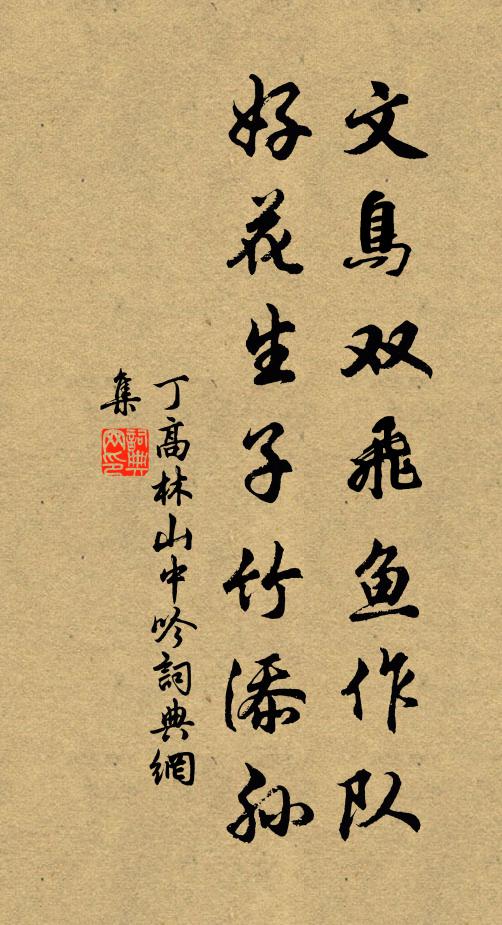 文鳥双飛魚作队
好花生子竹添孙
丁高林山中吟詞典網
集
詞典网印